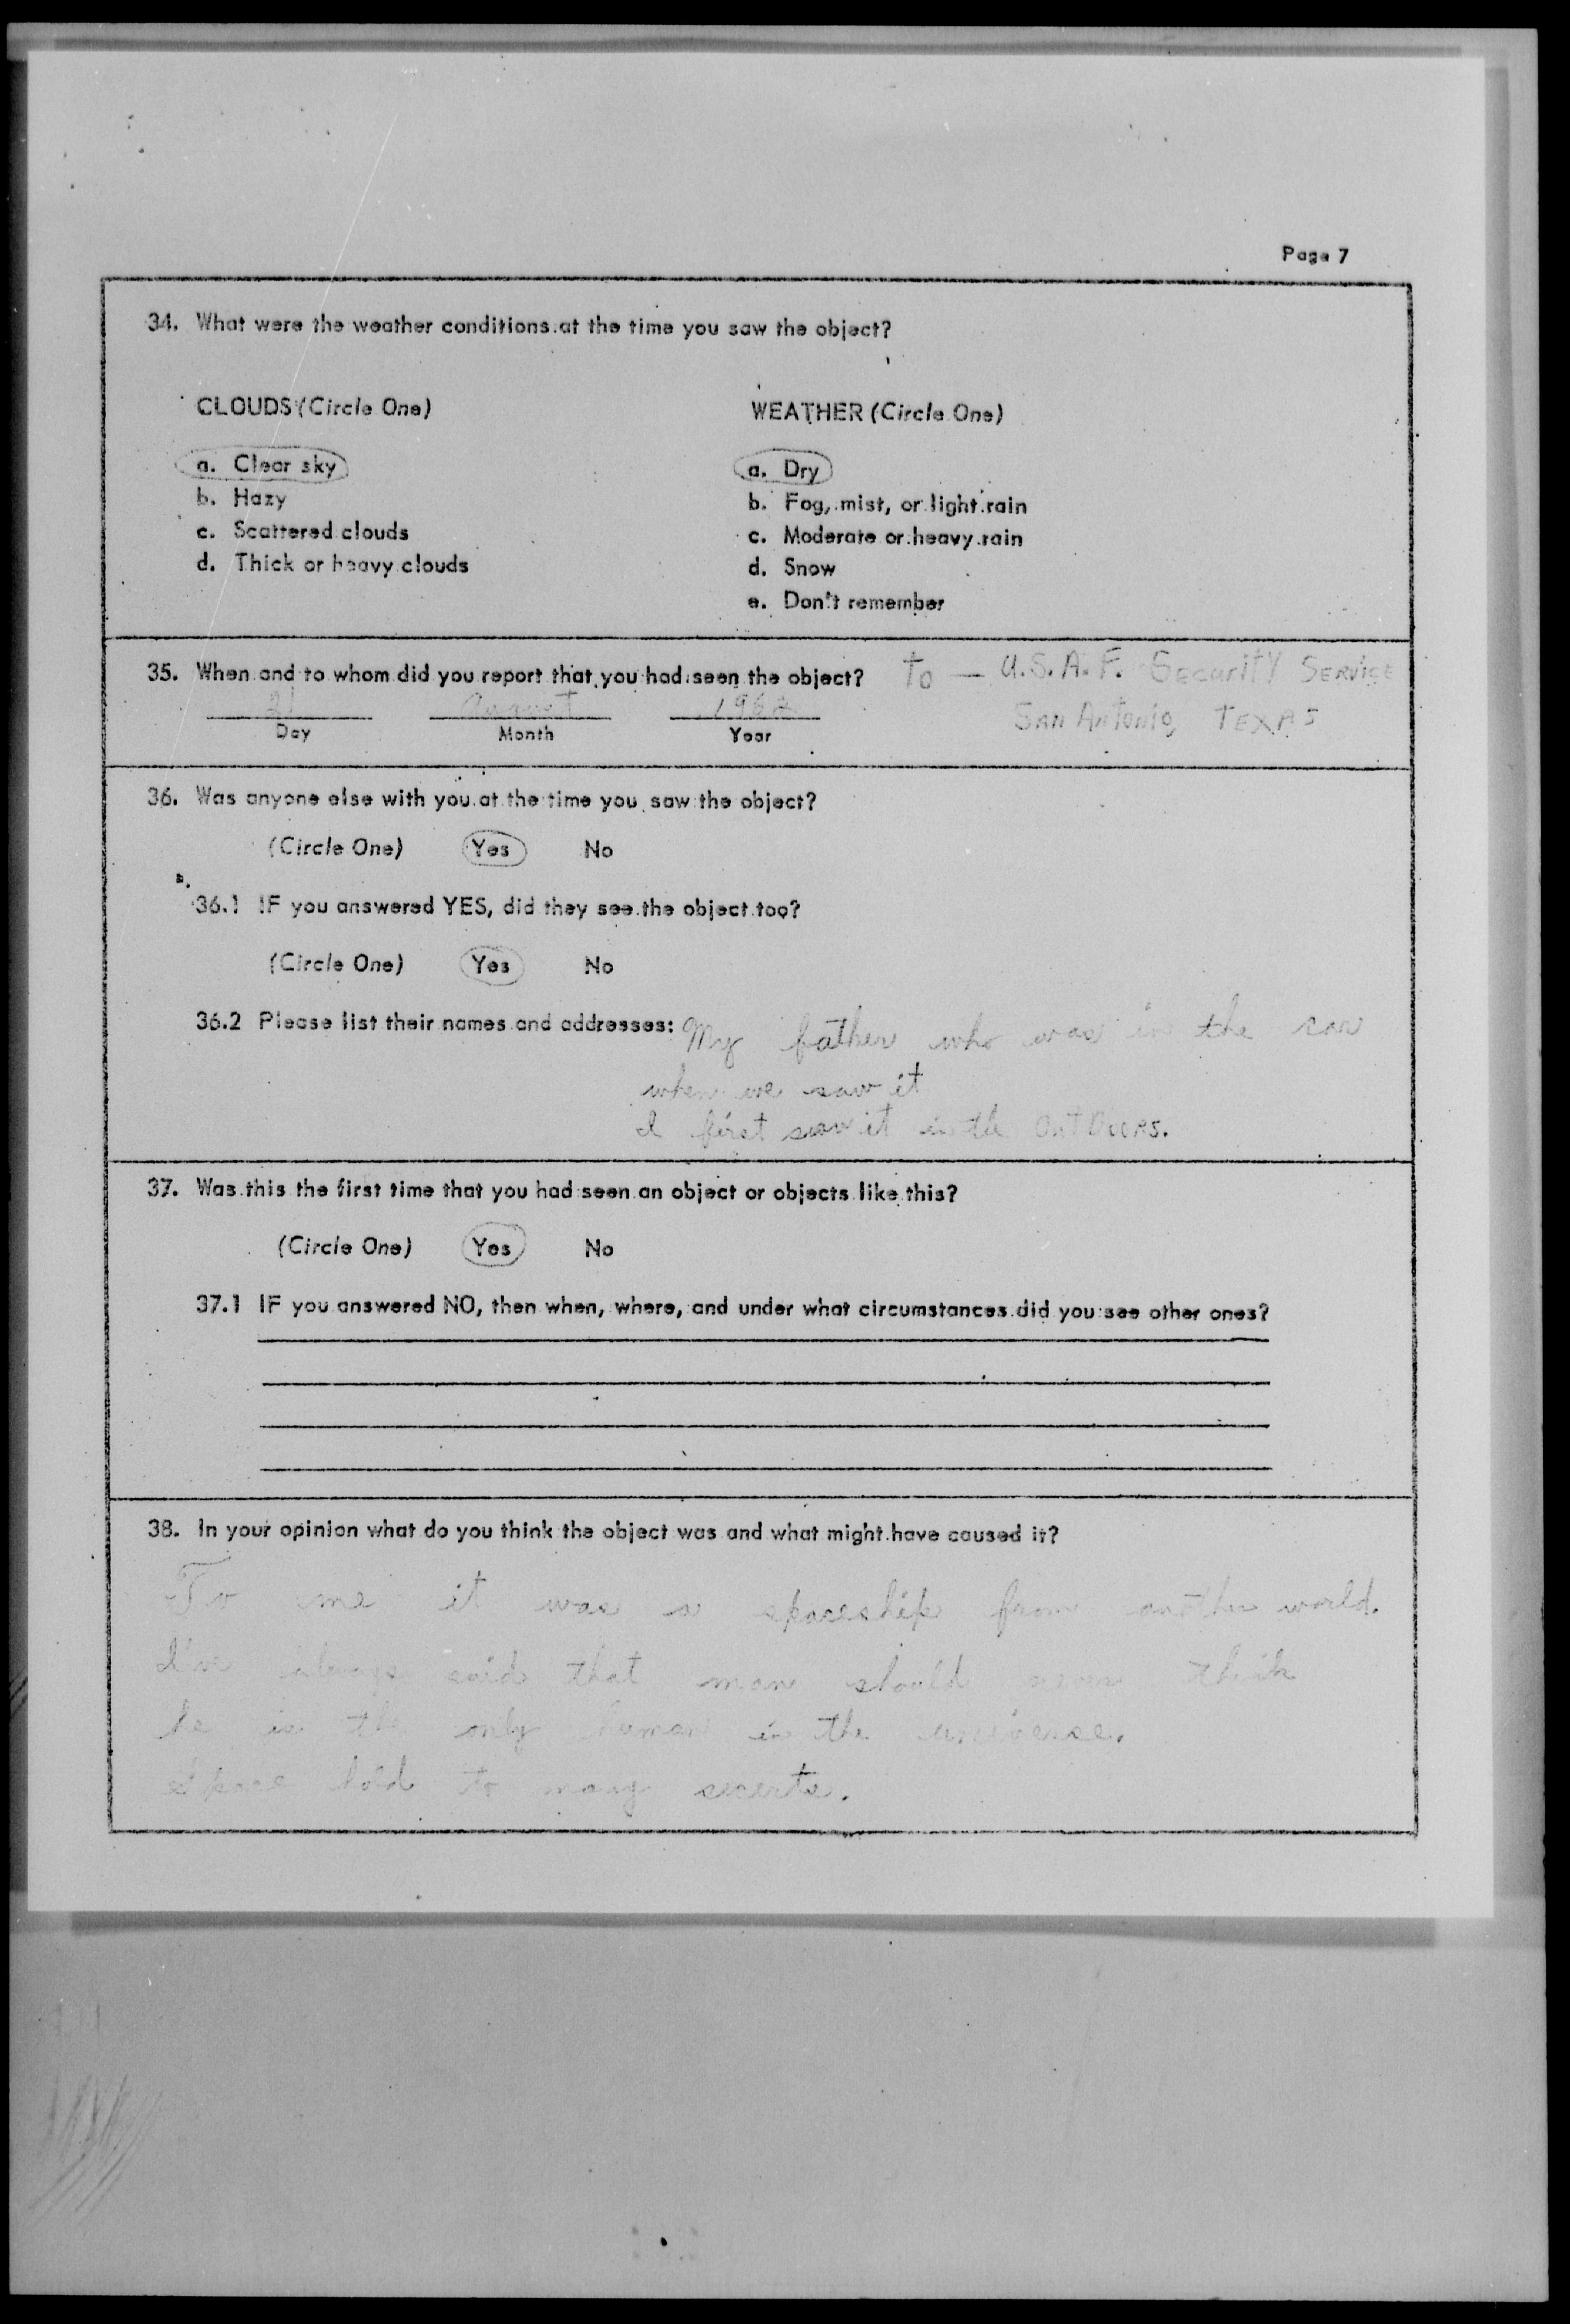 Page 7
34. What were the weather conditions at the time you saw the object?
CLOUDS (Circle One)
a. Clear sky
b. Hazy
c. Scattered clouds
d. Thick or heavy clouds
WEATHER (Circle One)
a. Dry
b. Fog, mist, or light rain
c. Moderate or heavy rain
d. Snow
e. Don't remember
35. When and to whom did you report that you had seen the object? To — U.S.A.F. Security Service
21 August 1962 San Antonio, Texas
Day Month Year
36. Was anyone else with you at the time you saw the object?
(Circle One) Yes No
36.1 IF you answered YES, did they see the object too?
(Circle One) Yes No
36.2 Please list their names and addresses: My father who was in the car
when we saw it
I first saw it in the OUTDOORS.
37. Was this the first time that you had seen an object or objects like this?
(Circle One) Yes No
37.1 IF you answered NO, then when, where, and under what circumstances did you see other ones?
38. In your opinion what do you think the object was and what might have caused it?
To me it was a spaceship from another world.
I've always said that man should never think
he is the only human in the universe.
space hold to many secerts.